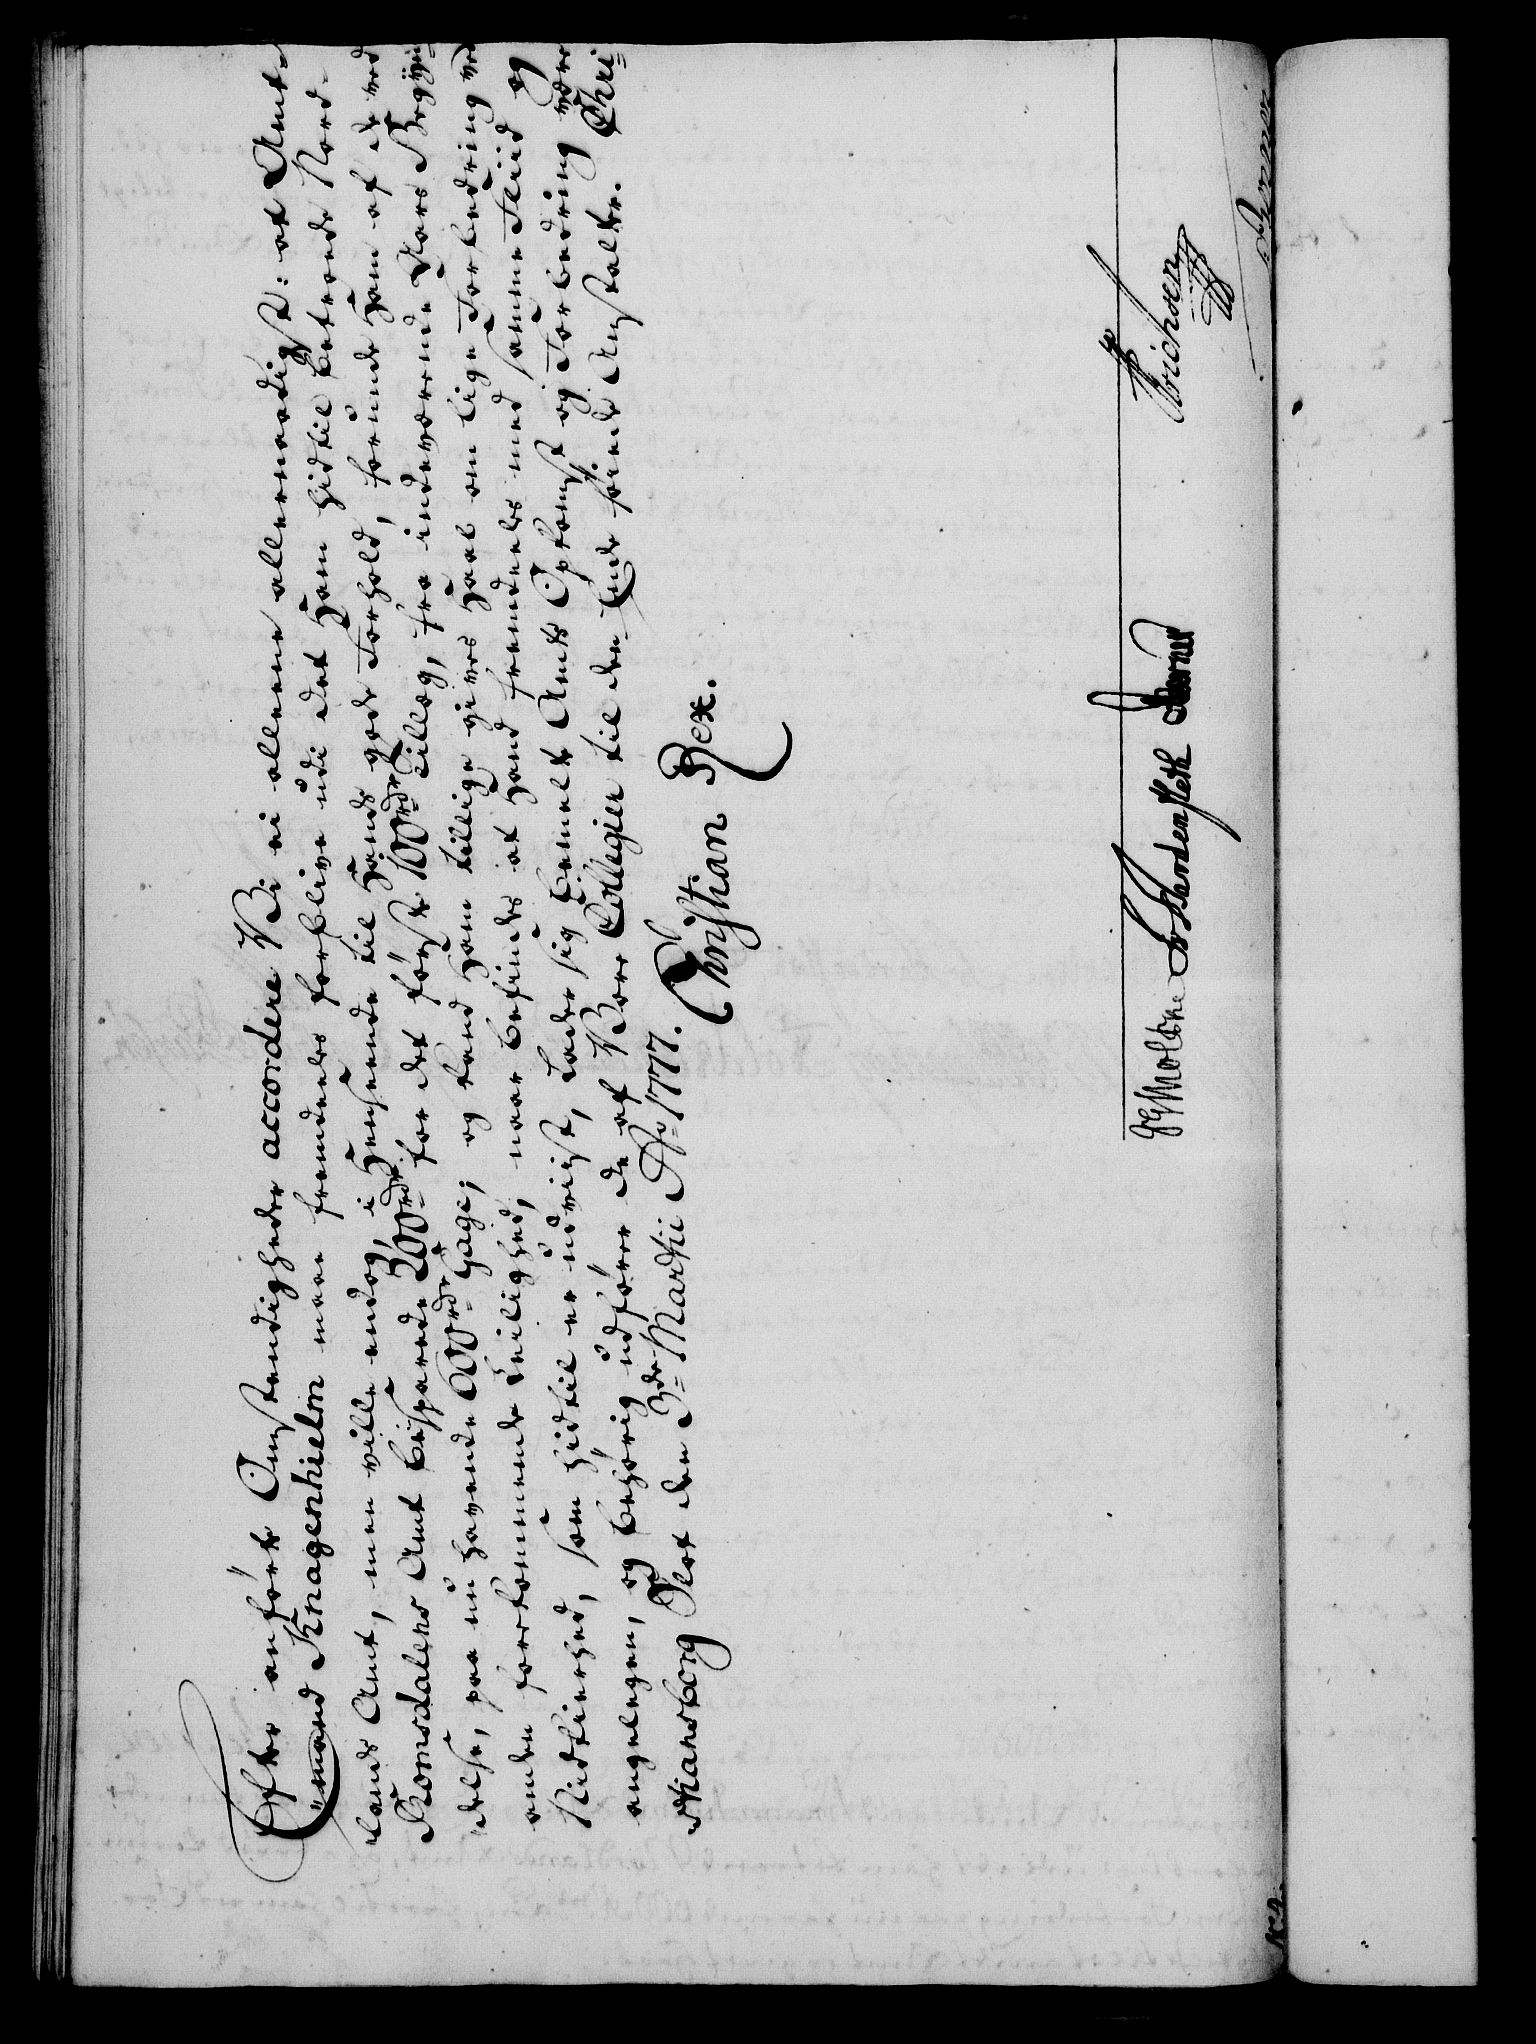 Efter anførte Omstændigheder accordere Vi ei alleene allernaadigst: at Amt-
mand Knagenhielm maae fremdeeles forblive udi det ham hidtil betroede Nord-
lands Amt, men ville endog, i Henseende til Hands gode Forhold, forunde Ham af de ved
Romsdalens Amt besparede 200 rdr. for det første 100 rdr. Tillæg, fra indeværende Aars Begyn-
delse, paa nu havende 600 rdr. Gage; og kand Ham tillige gives Haab om lige Forbedring ved
anden forekommende Leilighed, naar befindes at Hand fremdeeles med samme Fliid og
Nidkierhed, som hidtil er udviist, lader sig bemelte Amts Opkomst og Forbedring være
angelegen, og behørig udføre de af Vore Collegier til den Ende føiende Anstalter. Chri-
stiansborg Slot den 3de Martii Ao 1777. Christian Rex.
JE Moldtke S Schardenfleth
Erichsen
No. 4.